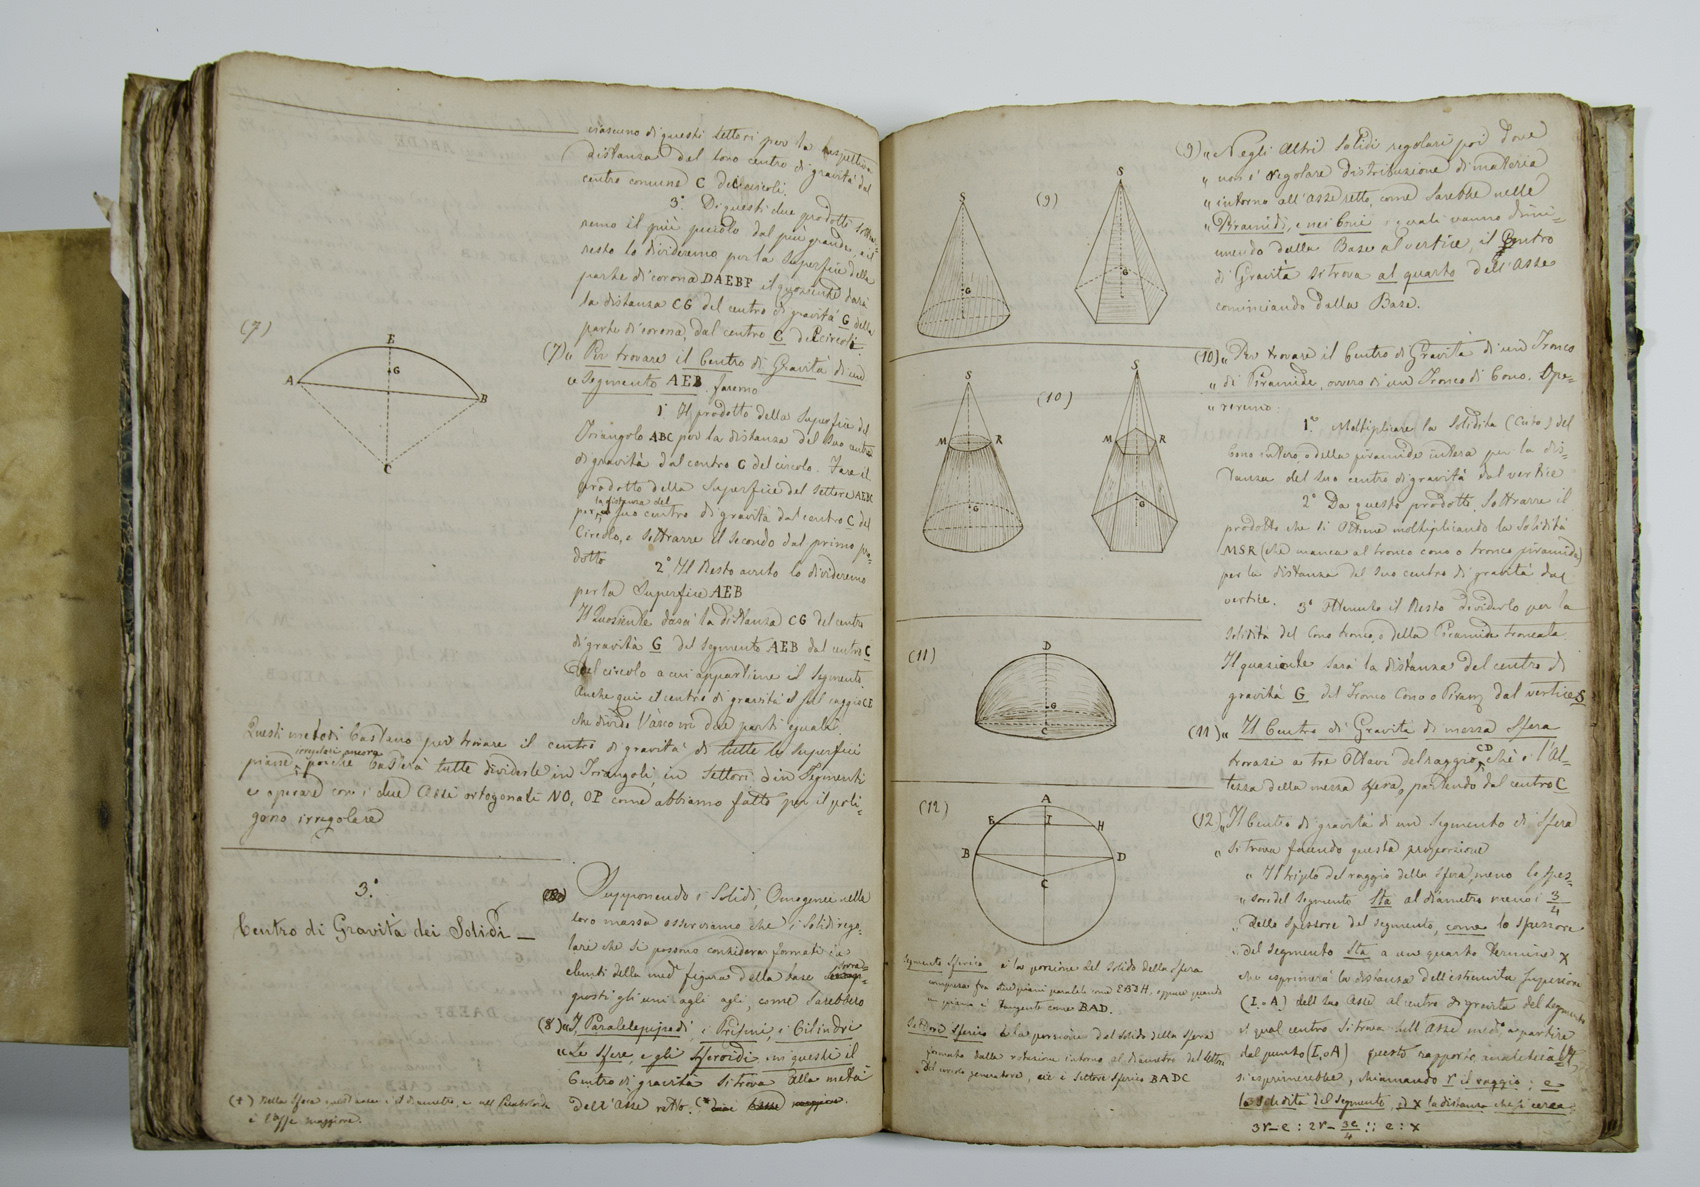 ciascuno di questi settori per la rispettiva
distanza del loro centro di gravità dal
centro comune C dei circoli.
3.° Di questi due prodotti sottrar-
remo il più piccolo dal più grande, e il
resto lo divideremo per la superficie della
parte di corona DAEBF il quoziente darà
la distanza CG del centro di gravità G della
parte di corona, dal centro C dei circoli.
(7) „ Per trovare il Centro di Gravità di un
„ Segmento AEB faremo
1° Il prodotto della Superficie del
Triangolo ABC per la distanza del suo centro
di gravità dal centro C del circolo. Fare il
prodotto della Superficie del Settore AEBC
per la distanza del suo centro di gravità dal centro C del
Circolo, e sottrarre il secondo dal primo pro-
dotto
2° Il Resto avuto lo divideremo
per la Superficie AEB
Il Quoziente darà la distanza CG del centro
di gravità G del segmento AEB dal centro C
del circolo a cui appartiene il Segmento.
Anche qui il centro di gravità è sul raggio CE
che divide l'arco in due parti eguali.
(7)
E
G
A
B
C
Questi metodi bastano per trovare il centro di gravità di tutte le superfici
piane irregolari ancora, poiché basterà tutte dividerle in Triangoli, in Settori, o in Segmenti
e operare con i due Assi ortogonali NO, OP come abbiamo fatto per il poli-
gono irregolare
3.°
Centro di Gravità dei Solidi
Supponendo i Solidi, Omogenei nella
loro massa osserviamo che i Solidi rego-
lari che si possono considerar formati da
elementi della med.ª figura della base sovrap-
posti gli uni agli altri, come sarebbero
(8) „ I Paralelepipedi, i Prismi, i Cilindri
„ Le Sfere, e gli Sferoidi, in questi il
Centro di gravità si trova alla metà
dell'Asse retto.
(+) Nella Sfera quest'asse è il diametro, e nell'
è l'asse maggiore.
(9)
S
G
S
G
(10)
S
M
R
G
S
M
R
G
(11)
D
G
C
(12)
A
E
I
H
B
D
C
Segmento Sferico è la porzione del Solido della Sfera
compresa fra due piani paralleli come EBDH, oppure quando
un piano è tangente come BAD.
Settore Sferico è la porzione del solido della Sfera
formato dalla rotazione intorno al diametro del settore
del circolo generatore, cioè il Settore Sferico BADC
(9) „ Negli altri Solidi regolari poi dove
„ non è regolare distribuzione di materia
„ intorno all'Asse retto, come Sarebbe nelle
„ Piramidi, e nei Coni i quali vanno dimi-
nuendo dalla Base al vertice, il Centro
di Gravità si trova al quarto dell'Asse
cominciando dalla Base.
(10) „ Per trovare il Centro di Gravità di un Tronco
„ di Piramide, ovvero di un Tronco di Cono. Ope-
„ reremo
1.° Moltiplicare la Solidità (Cubo) del
Cono intero o della piramide intera per la dis-
tanza del suo centro di gravità dal vertice
2° Da questo prodotto, Sottrarre il
prodotto che si ottiene moltiplicando la Solidità
MSR (che manca al tronco cono o tronco piramide)
per la distanza del suo centro di gravità dal
vertice.
3° Ottenuto il Resto dividerlo per la
Solidità del Cono tronco, o della Piramide troncata.
Il quoziente sarà la distanza del centro di
gravità G del Tronco Cono o Piram. dal vertice S
(11) „ Il Centro di Gravità di mezza Sfera
trovasi ai tre Ottavi del raggio CD che è l'Al-
tezza della mezza sfera, partendo dal centro C
(12) „ Il Centro di gravità di un Segmento di Sfera
„ si trova facendo questa proporzione
„ Il triplo del raggio della Sfera, meno lo spes-
„ sore del Segmento Sta al diametro meno i 3/4
„ dello spessore del segmento, come lo spessore
„ del segmento Sta a un quarto termine x
che esprimerà la distanza dell'estremità superiore
(I o A) dell'suo Asse al centro di gravità del segmento
il qual centro si trova nell'Asse med.° a partire
dal punto (I, o A) questo rapporto
si esprimerebbe, chiamando r il raggio; e
la solidità del segmento, ed x la distanza che si cerca
3r – e : 2r – 3e/4 :: e : x